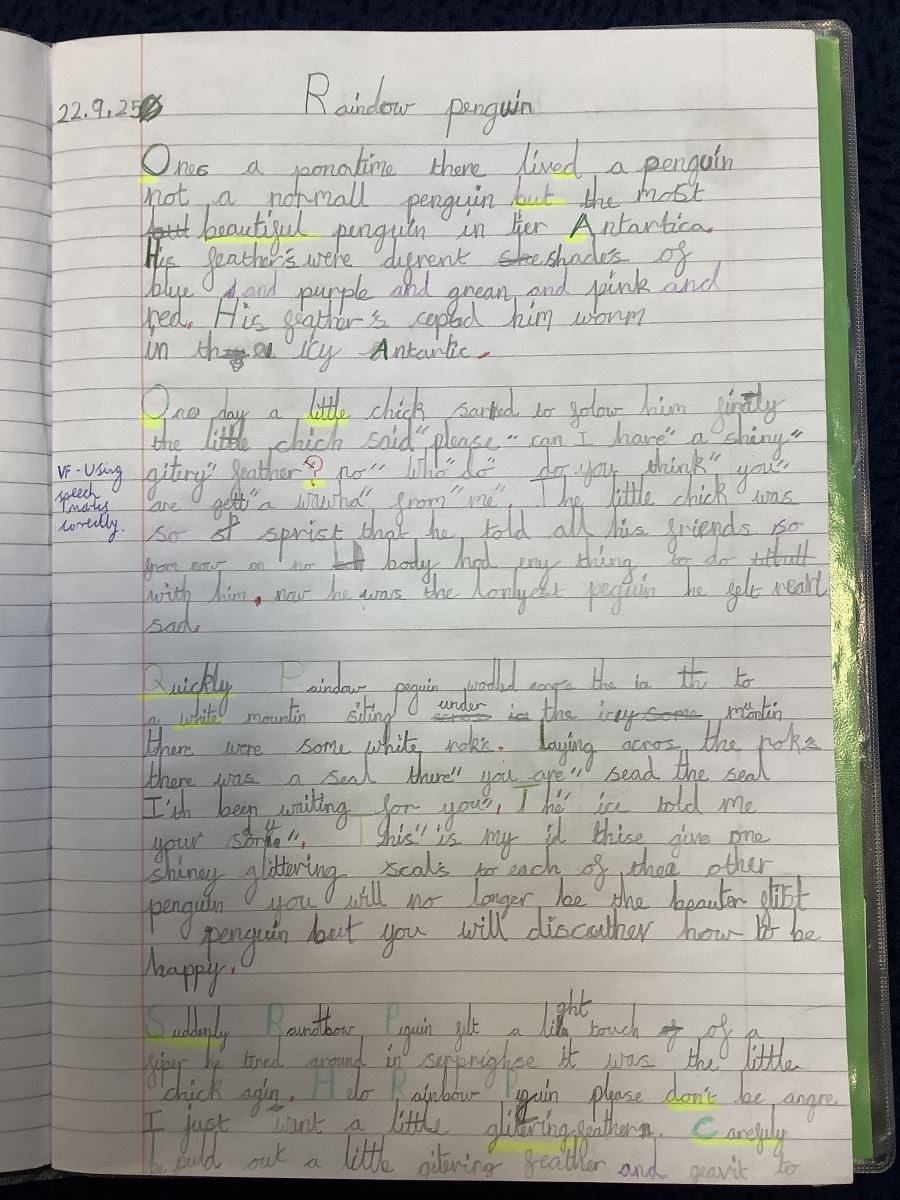 22.9.25
Raindow penguin
Ones a ponatime there lived a penguin
not a normall penguin but the most
beautiful penguin in tier Antartica.
His feather's were diferent shades of
blye and purple and grean and pink and
red. His feather's ceped him worm
in the icy Antartic.
One day a little chick sarted to folow him finally
the little chich said "please" can I have" a shiny"
gitery" feather? no" Who" do" do you think" you"
VF - Using
speech
marks
correctly.
are gett" a wawha" from" me". The little chick was
so sprist that he told all his friends so
from now on no body had eny thing to do
with him. now he was the lonlyest peguin he felt nearl
sad.
Quickly Raindow peguin wadled acros the ice to
a white mountin siting under the icey montin
there were some white roks. Laying acros the roks
there was a seal there" you are" sead the seal
I'th been waiting for you". The" ice told me
your This" is my id thise give one
shiney glittering scals to each of thee other
penguin you will no longer be the
penguin but you will discuther how to be
happy.
Suddenly Peguin felt a light touch of a
fiper he tored around in serprighse it was the little
chick agin. Helo Rainbow Pguin please don't be angre
I just want a little glitering feather. Carefuly
he puld out a little gitering feather and geavit to